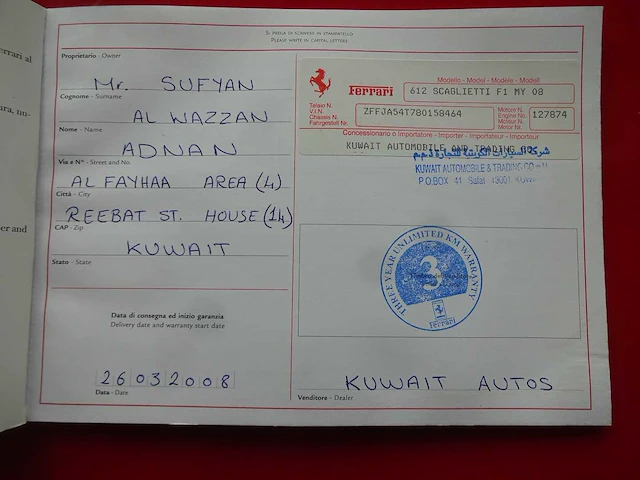 SI PREGA DI SCRIVERE IN STAMPATELLO
PLEASE WRITE IN CAPITAL LETTERS
Proprietario - Owner
Mr. SUFYAN
Cognome - Surname
AL WAZZAN
Nome - Name
ADNAN
Via e N° - Street and No.
AL FAYHAA AREA (4)
Città - City
REEBAT ST. HOUSE (14)
CAP - Zip
KUWAIT
Stato - State
Data di consegna ed inizio garanzia
Delivery date and warranty start date
26032008
Data - Date
Modello - Model - Modèle - Modell
Ferrari
612 SCAGLIETTI F1 MY 08
Telaio N.
V.I.N.
Chassis N.
Fahrgestell Nr.
ZFFJA54T780158464
Motore N.
Engine No.
Moteur N.
Motor Nr.
127874
Concessionario o Importatore - Importer - Importateur - Importeur
KUWAIT AUTOMOBILE AND TRADING CO.
شركة السيارات الكويتية للتجارة ذ.م.م
KUWAIT AUTOMOBILE & TRADING CO
P.O.BOX 41 Safat 13001
THREE YEAR UNLIMITED KM WARRANTY
3
Ferrari
KUWAIT AUTOS
Venditore - Dealer
errari al
ura, nu-
er and